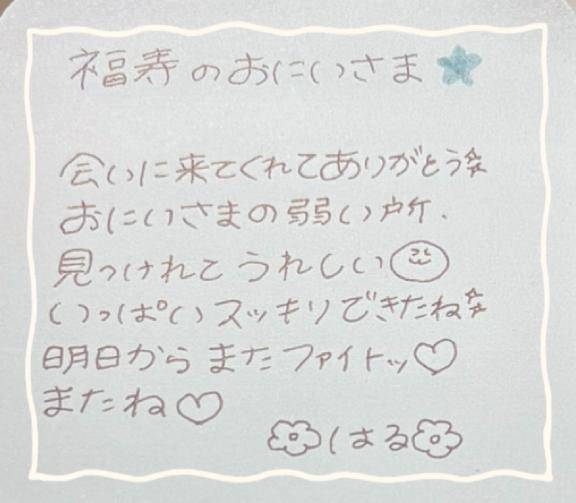 福寿のおにいさま
会いに来てくれてありがとう
おにいさまの弱い所、
見つけれてうれしい
いっぱいスッキリできたね
明日からまたファイトッ♡
またね♡
はる